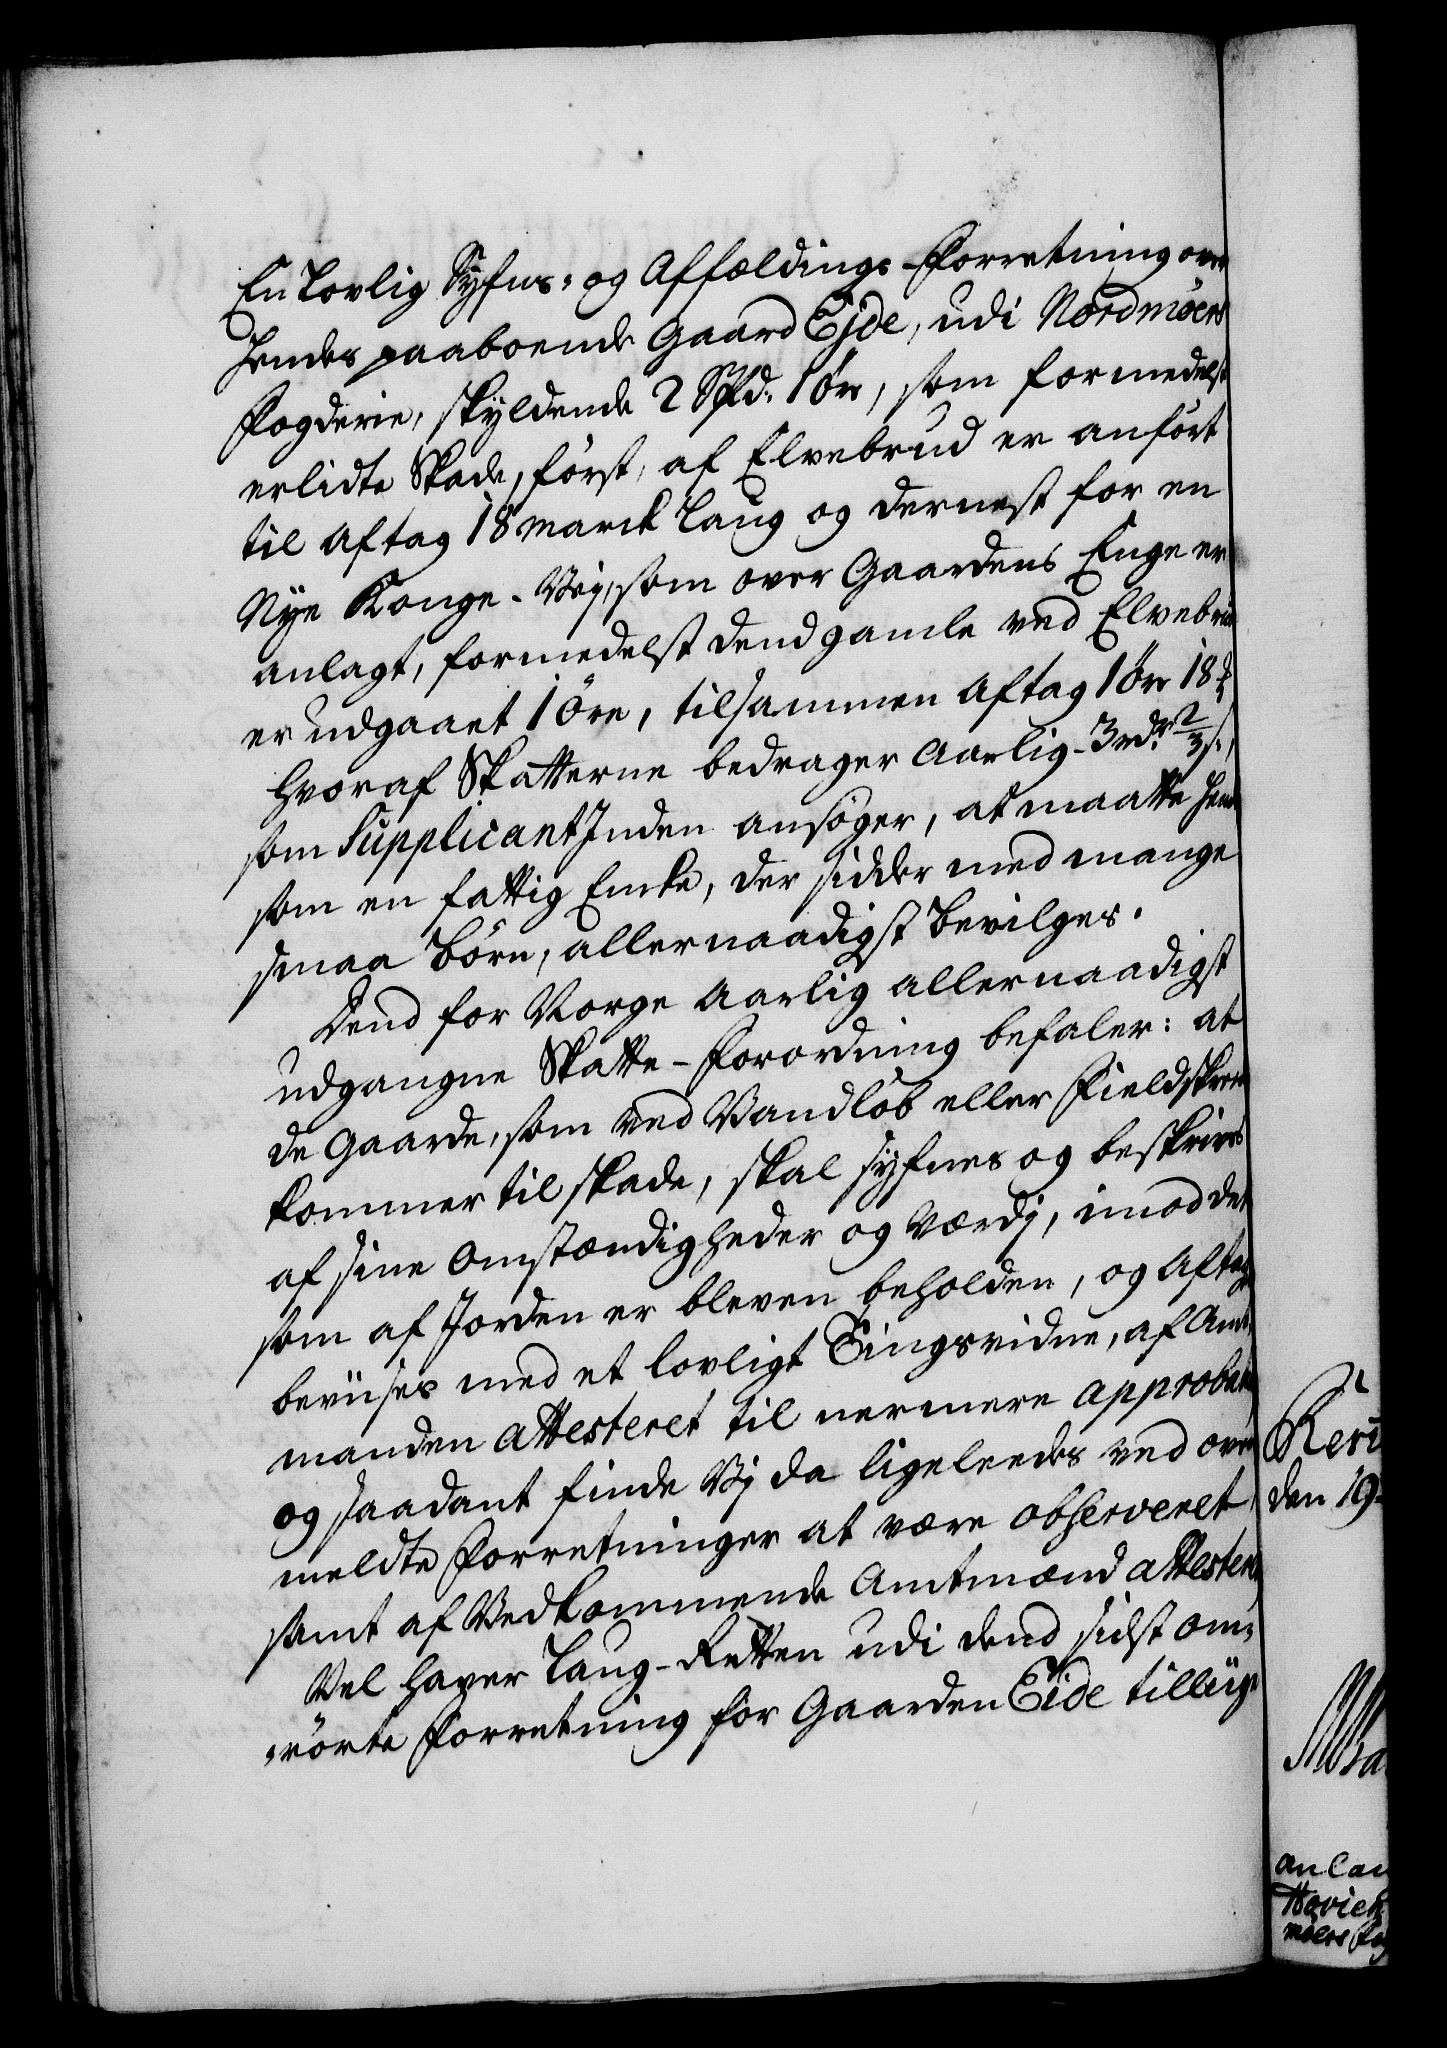 En Lovlig Syfns- og Affældings-Forretning over
hendes paaboende Gaard Ejde, udi Nordmøers
Fogderie, skyldende 2 Spd: 1 ør, som formedelst
erlidte Skade, først, af Elvebrud er anført
til Aftag 18 Marck Laug og dernest for en
Nye Konge-Vej, som over Gaardens Enge er
anlagt, formedelst dend gamle ved Elvebrud
er udgaaet 1 öre, tilsammen Aftag 1 ör 18
hvoraf Skatterne bedrager Aarlig 3 rdr 2/3 s.,
som SupplicantInden ansøger, at maatte hende
som en fattig Encke, der sidder med mange
smaa Börn, allernaadigst bevilges.
Dend for Norge Aarlig allernaadigst
udgangne Skatte-Forordning befaler: at
de Gaarde, som ved Vandløb eller Fieldskreed
kommer til skade, skal syfnes og beskrives
af sine Omstændigheder og Værdj, imod det
som af Jorden er bleven beholden, og Aftag
beviises med et lovligt Tingsvidne, af Amt-
manden Attesteret til nermere approbation
og saadant finde Vj da ligeleedes ved over
meldte Forretninger at være observeret,
samt af Vedkommende Amtmænd attesteret
Vel haver Laug-Retten udi dend sidst om-
-rörte Forretning for Gaarden Eide tilliige
den 19